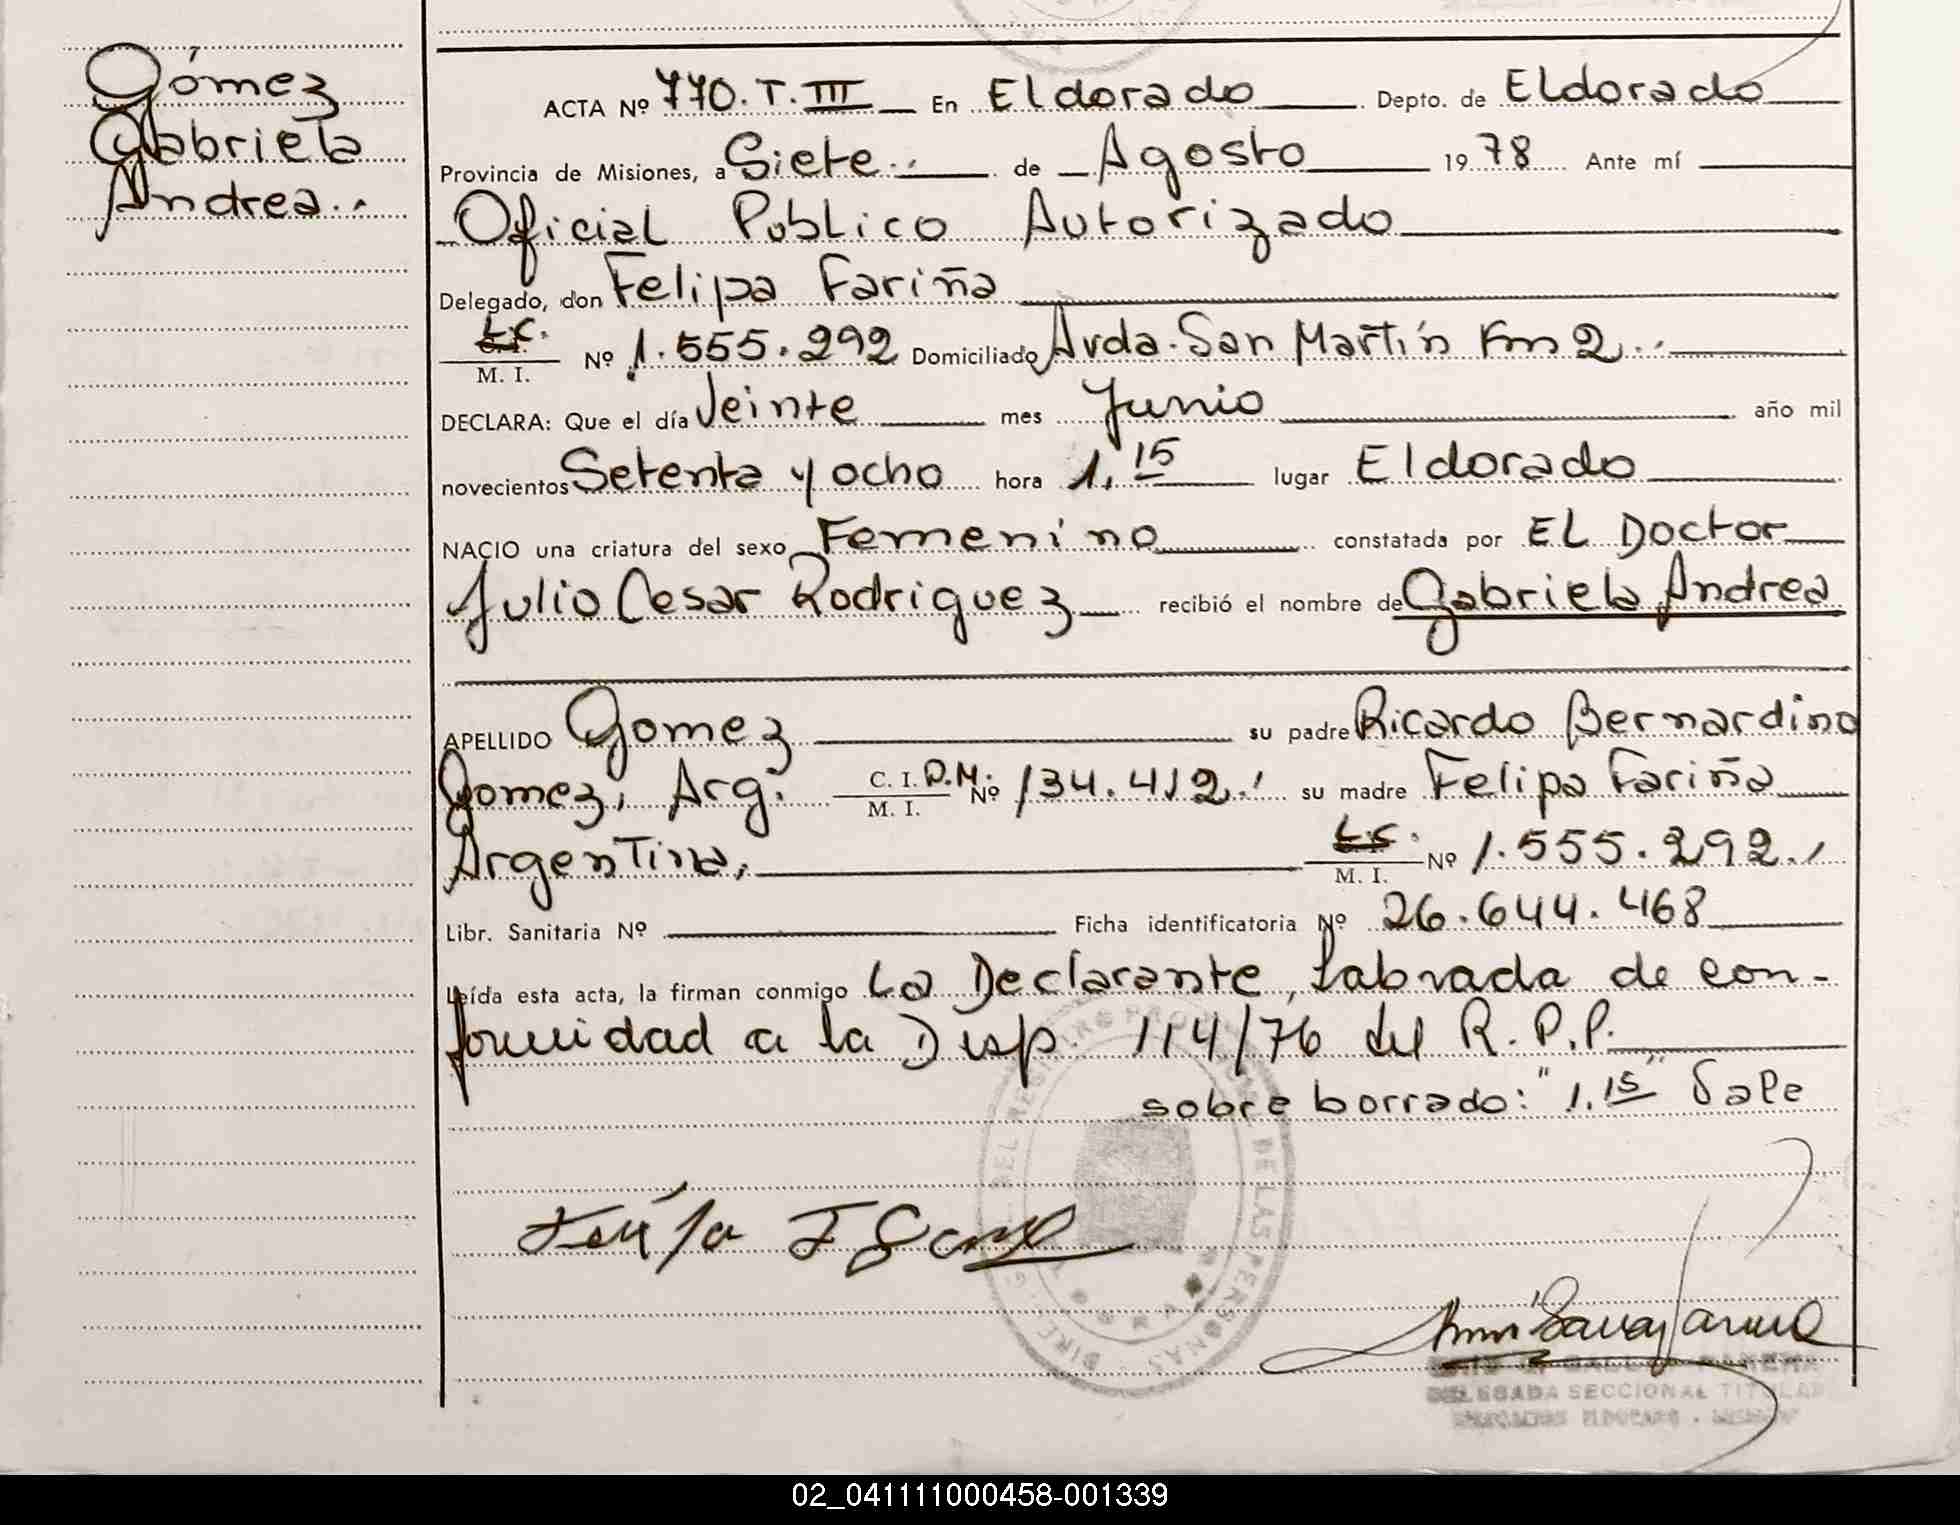 Gómez
Gabriela
Andrea..
ACTA Nº 770.T.III En Eldorado Depto. de Eldorado
Provincia de Misiones, a Siete.. de Agosto 1978 Ante mí
Oficial Publico Autorizado
Delegado, don Felipa Fariña
L.C.
M. I. Nº 1.555.292 Domiciliado Avda. San Martín Km 2..
DECLARA: Que el día Veinte mes Junio año mil
novecientos Setenta y ocho hora 1.15 lugar Eldorado
NACIO una criatura del sexo Femenino constatada por EL Doctor
Julio Cesar Rodriguez recibió el nombre de Gabriela Andrea
APELLIDO Gomez su padre Ricardo Bernardino
Gomez, Arg: C. I. D.M. Nº 134.412.' su madre Felipa Fariña
M. I.
Argentina, L.C. Nº 1.555.292.,
M. I.
Libr. Sanitaria Nº Ficha identificatoria Nº 26.644.468
Leída esta acta, la firman conmigo La Declarante, labrada de con-
formidad a la Disp. 114/76 del R.P.P.
sobre borrado: "1.15" Vale
DEL REGISTRO PROVINCIAL DE LAS PERSONAS
DELEGADA SECCIONAL TITULAR
02_041111000458-001339